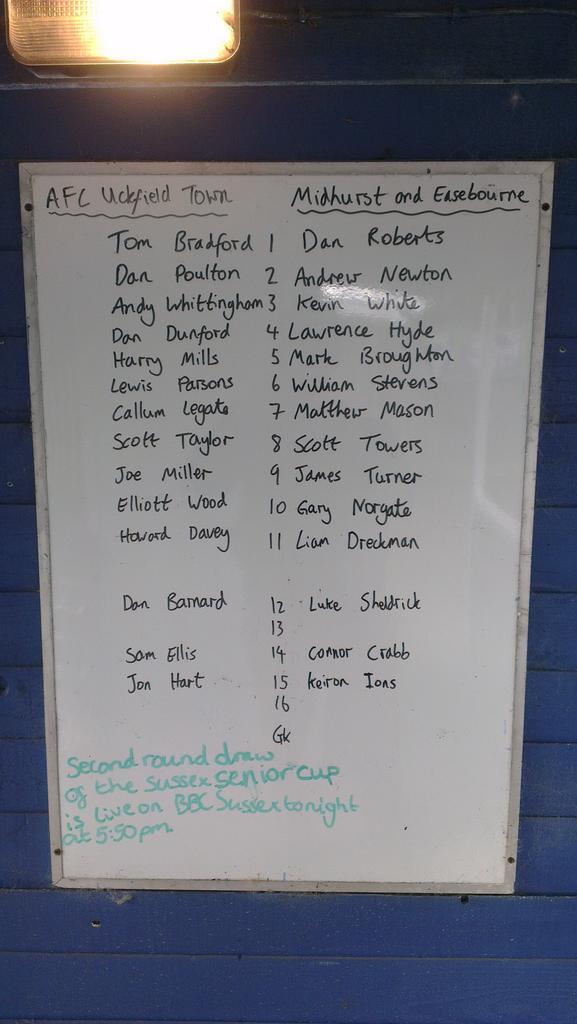 AFC Uckfield Town Midhurst and Easebourne
Tom Bradford 1 Dan Roberts
Dan Poulton 2 Andrew Newton
Andy Whittingham 3 Kevin White
Dan Dunford 4 Lawrence Hyde
Harry Mills 5 Mark Broughton
Lewis Parsons 6 William Stevens
Callum Legate 7 Matthew Mason
Scott Taylor 8 Scott Towers
Joe Miller 9 James Turner
Elliott Wood 10 Gary Norgate
Howard Davey 11 Liam Dreckman
Dan Barnard 12 Luke Sheldrick
13
Sam Ellis 14 Connor Crabb
Jon Hart 15 Keiron Ions
16
Gk
Second round draw
of the Sussex senior cup
is Live on BBC Sussex tonight
at 5:50pm.